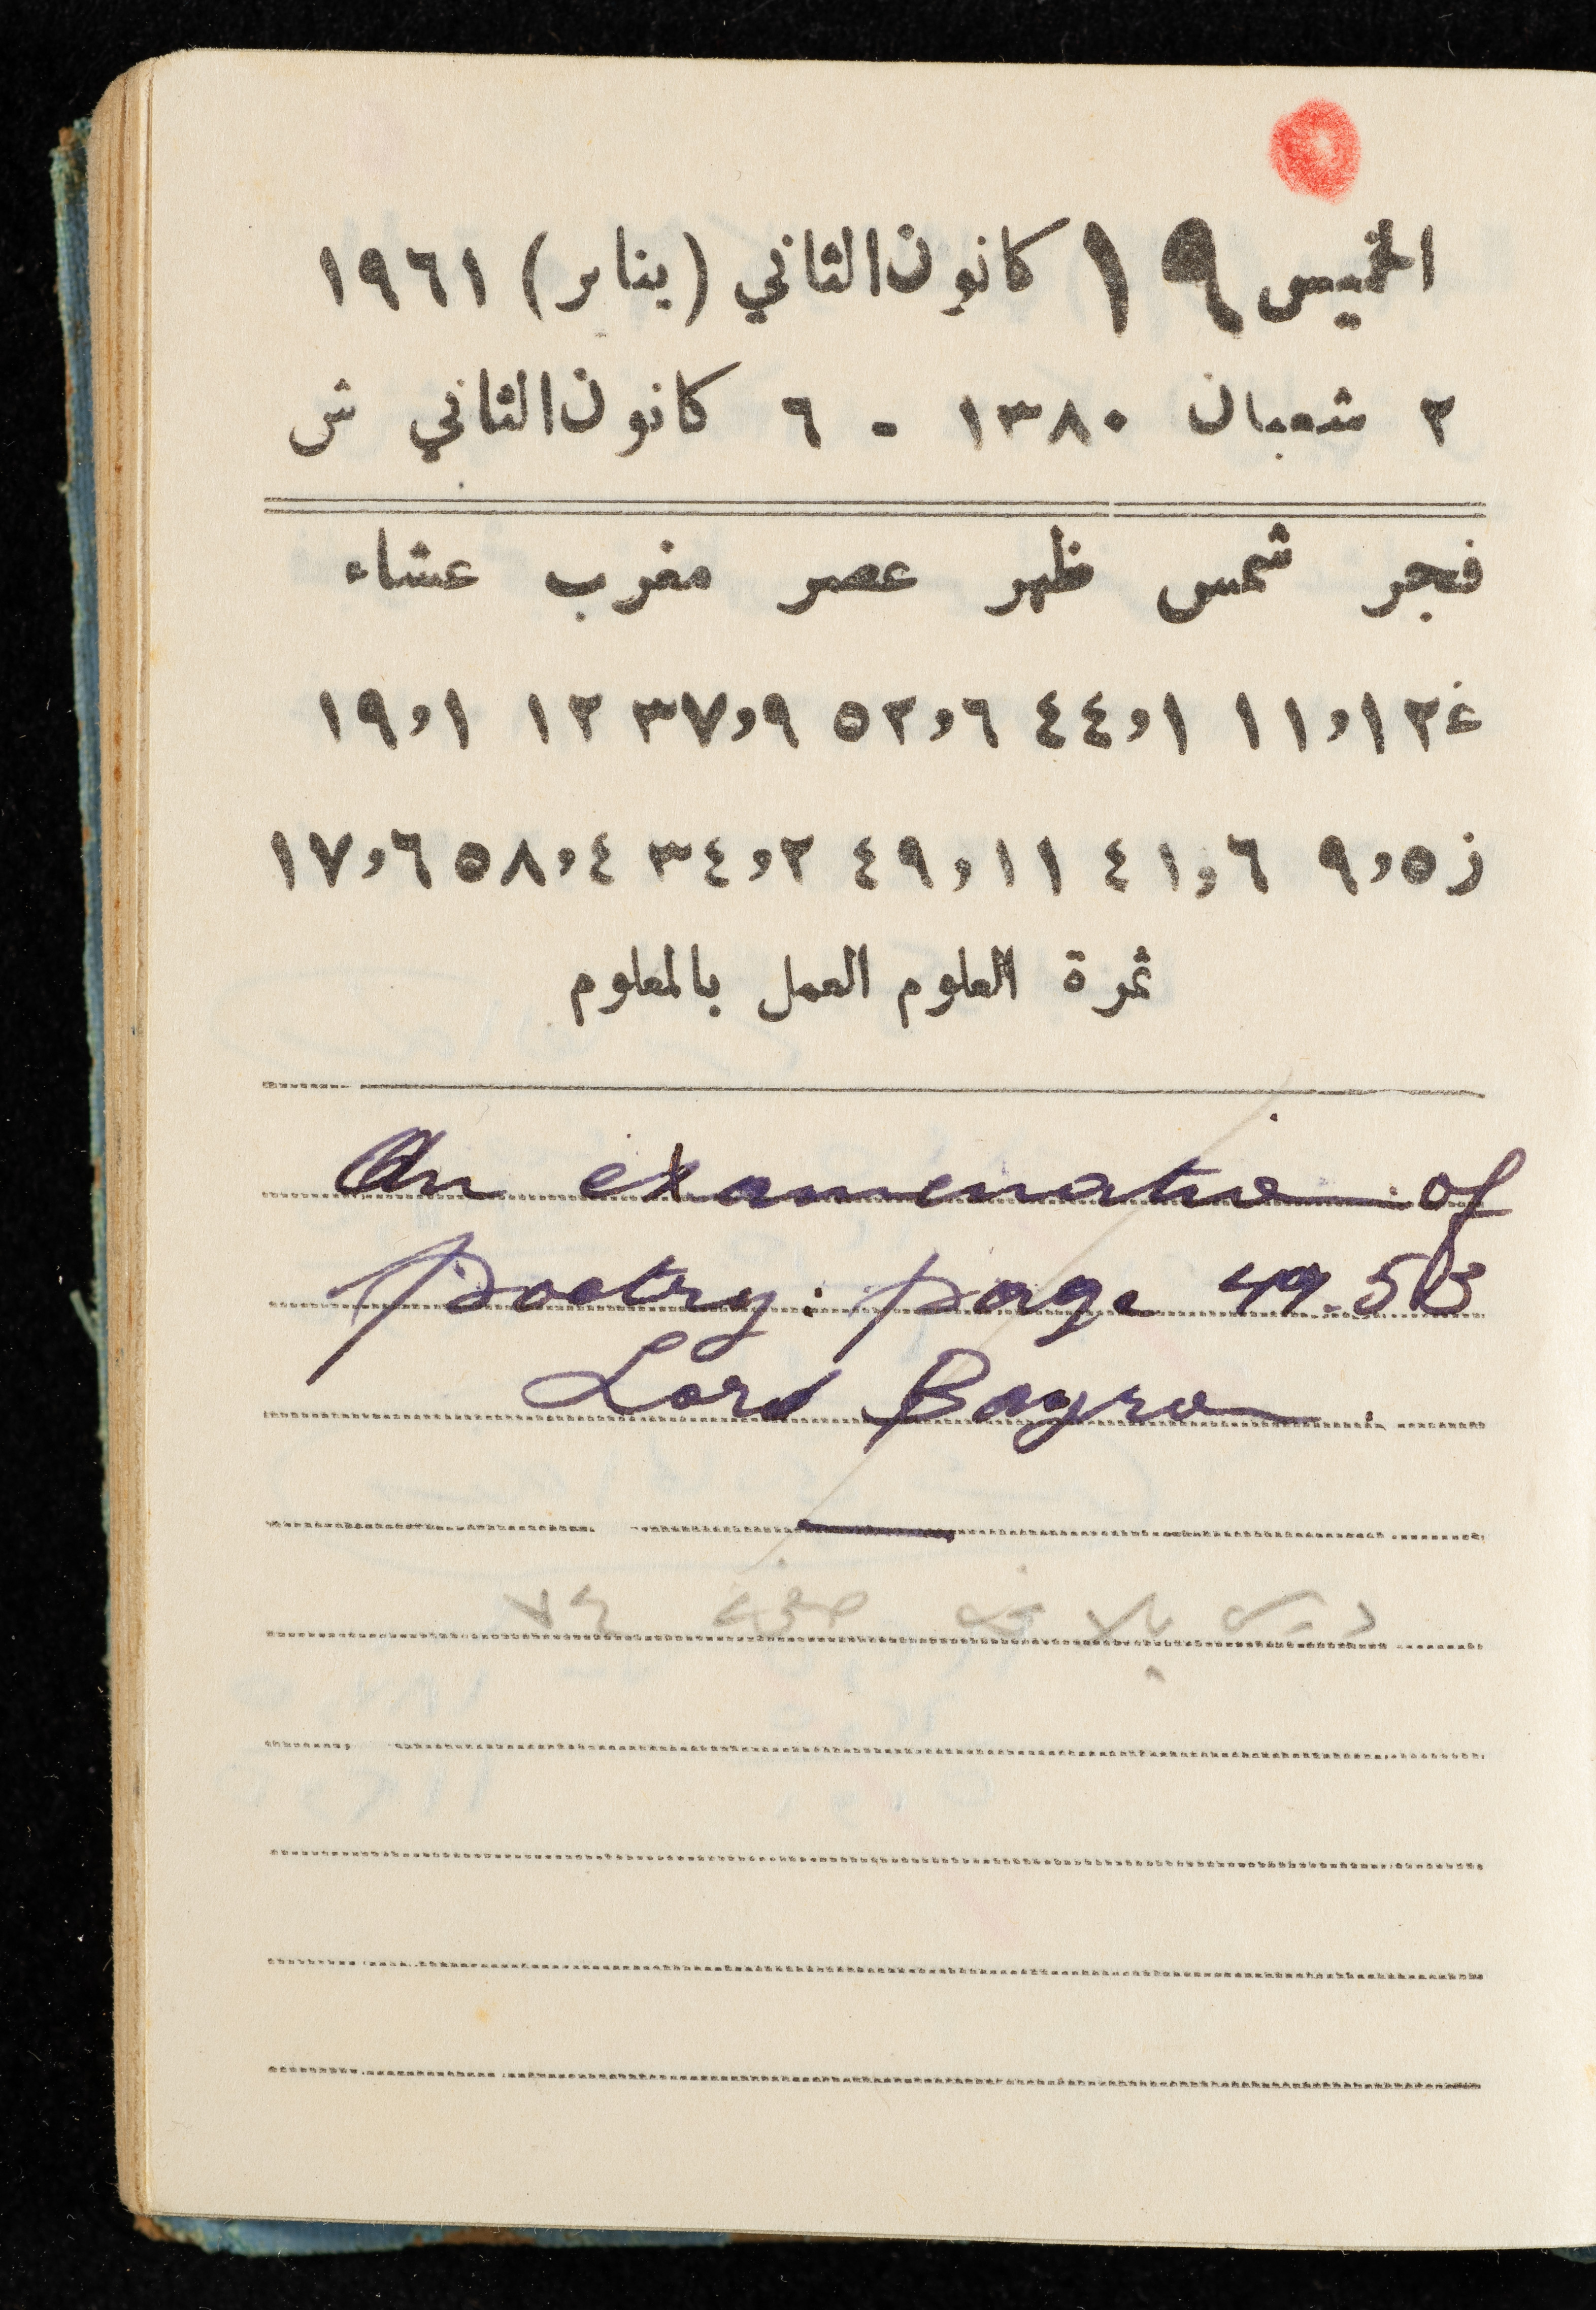 الخميس ١٩ كانون الثاني (يناير) ١٩٦١
٢ شعبان ١٣٨٠ - ٦ كانون الثاني ش
فجر شمس ظهر عصر مغرب عشاء
غ ١٢,١١ ١,٤٤ ٦,٥٢ ٩,٣٧ ١٢ ١,١٩
ز ٥,٩ ٦,٤١ ١١,٤٩ ٢,٣٤ ٤,٥٨ ٦,١٧
ثمرة العلوم العمل بالمعلوم
An examination of
Poetry: page 49-53
Lord Bayron.
صفحة